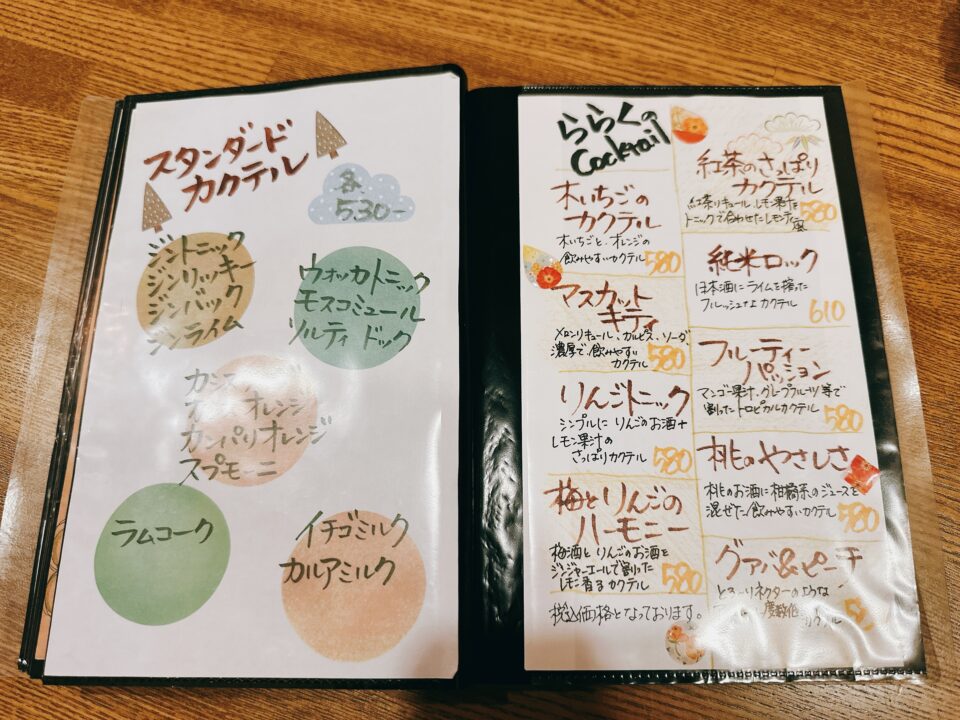 スタンダード
カクテル
各
530-
ジントニック
ジンリッキー
ジンバック
ジンライム
ウォッカトニック
モスコミュール
ソルティドック
オレンジ
カンパリオレンジ
スプモーニ
ラムコーク
イチゴミルク
カルアミルク
ららくの
Cocktail
木いちごの
カクテル
木いちごと、オレンジの
飲みやすいカクテル 580
マスカット
キティ
メロンリキュール、カルピス、ソーダ、
濃厚で飲みやすい
カクテル 580
りんごトニック
シンプルに りんごのお酒+
レモン果汁の
さっぱりカクテル 580
梅とりんごの
ハーモニー
梅酒とりんごのお酒を
ジンジャーエールで割った
レモン香るカクテル 580
税込価格となっております。
紅茶のさっぱり
カクテル
紅茶リキュール、レモン果汁を
トニックで合わせたレモンティ風 580
純米ロック
日本酒にライムを搾った
フレッシュなカクテル 610
フルーティー
パッション
マンゴー果汁、グレープフルーツ等で
割ったトロピカルカクテル 580
桃のやさしさ
桃のお酒に柑橘系のジュースを
混ぜた飲みやすいカクテル 580
グァバ&ピーチ
とろーりネクターのような